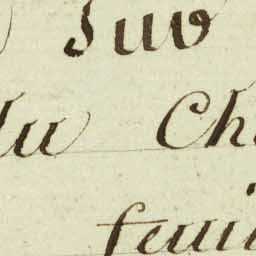 Sur
du Ch
feuil